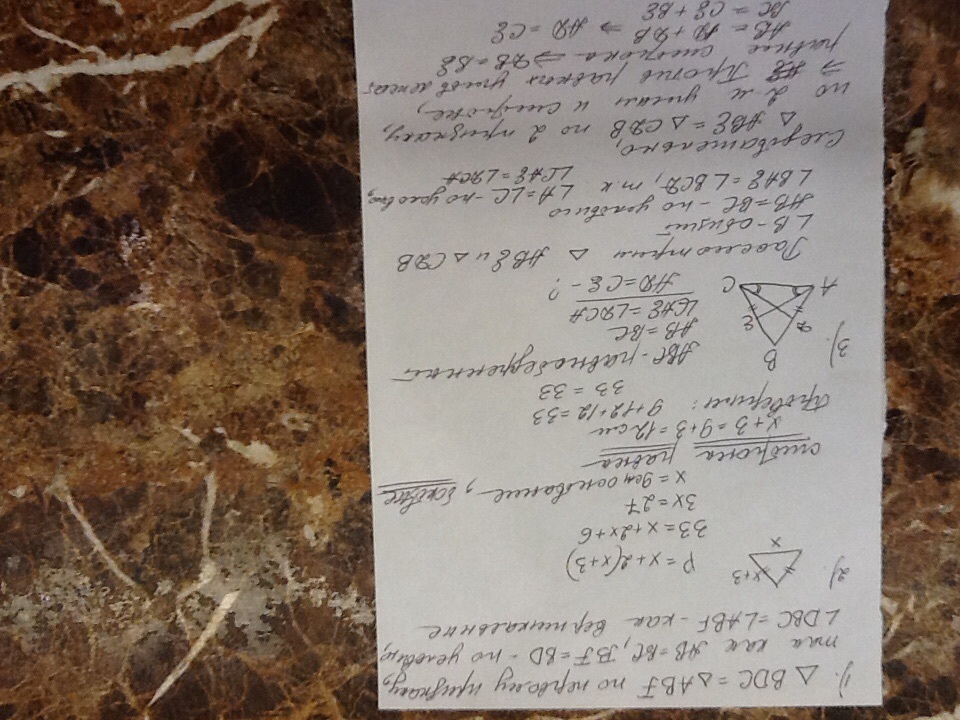 1). △ BDC = △ ABF по первому признаку,
так как AB = BC, BF = BD - по условию,
∠DBC = ∠ABF - как вертикальные
2). x+3
x
P = x + 2(x+3)
33 = x + 2x + 6
3x = 27
x = 9см основание, боковые
сторона равна
x+3 = 9+3 = 12 см
Проверим: 9+12+12 = 33
33 = 33
3). B
D E
A C
ABC - равнобедренный
AB = BC
∠CAE = ∠DCA
AD = CE - ?
Рассмотрим △ ABE и △ CDB
∠B - общий
AB = BC - по условию
∠BAE = ∠BCD, т.к ∠A = ∠C - по условию,
∠CAE = ∠DCA
Следовательно,
△ ABE = △ CDB по 2 признаку,
по 2-м углам и стороне,
⇒ Против равных углов лежат
равные стороны ⇒ DB = BE
AB = AD + DB ⇒ AD = CE
BC = CE + BE